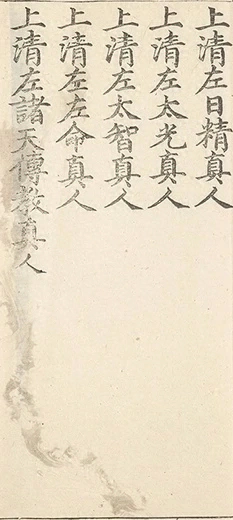 上清左日精真人
上清左太光真人
上清左太智真人
上清左左命真人
上清左諸天傳教真人